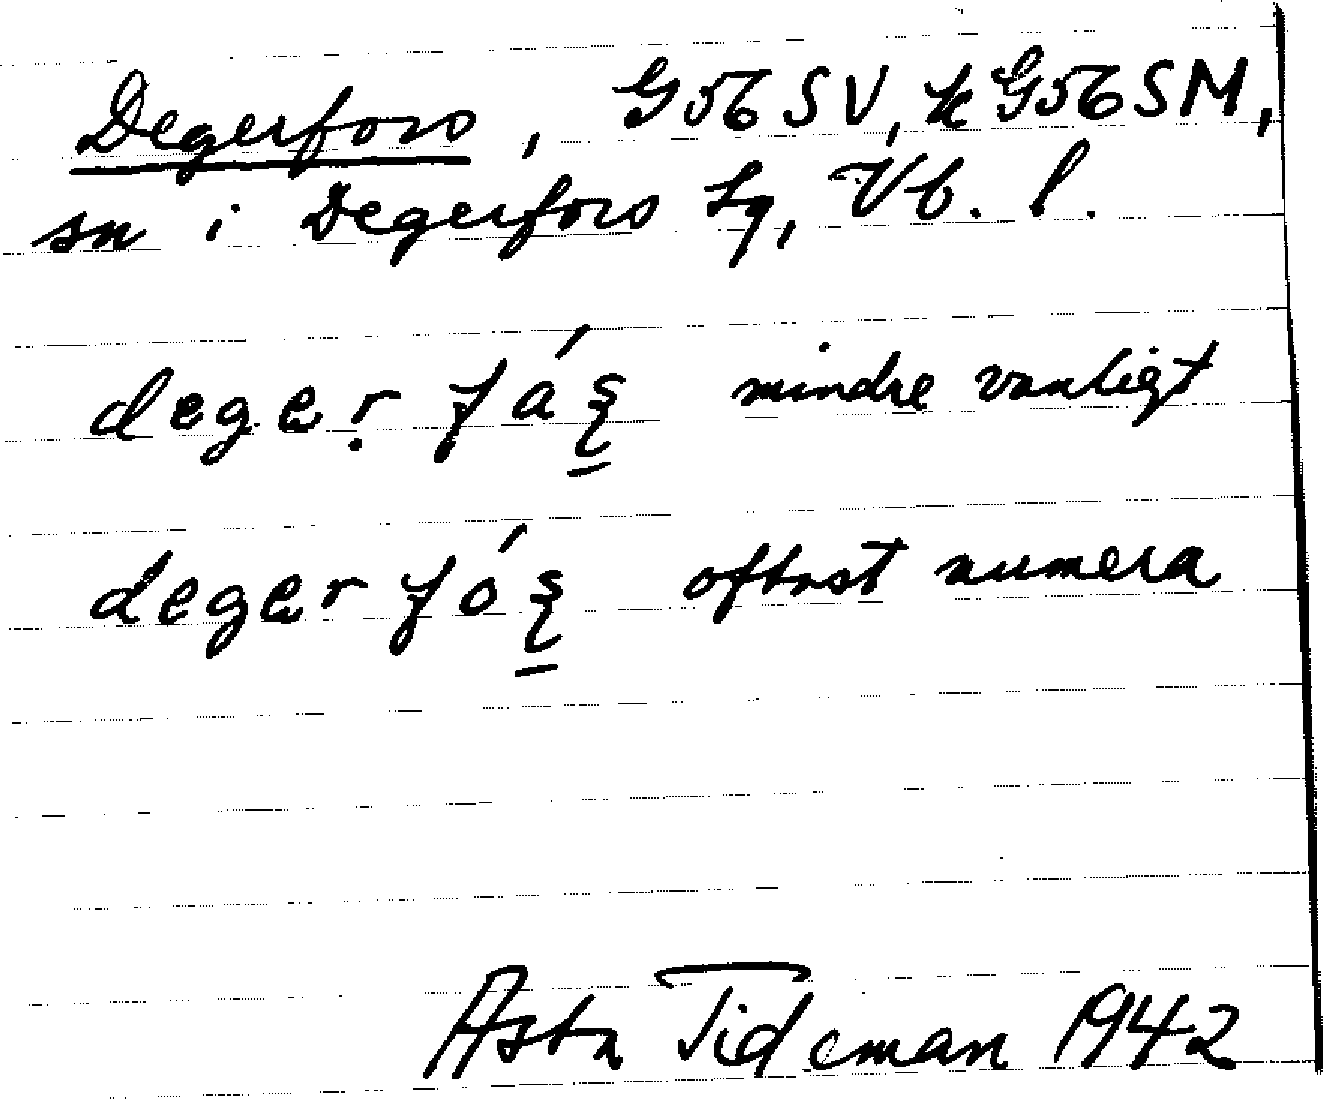 Degerfors, G56SV, k G56SM,
sn i Degerfors lg, Vb. l.
deger fá̱ş mindre vanligt
deger fó̱ş oftast numera
Asta Tideman 1942